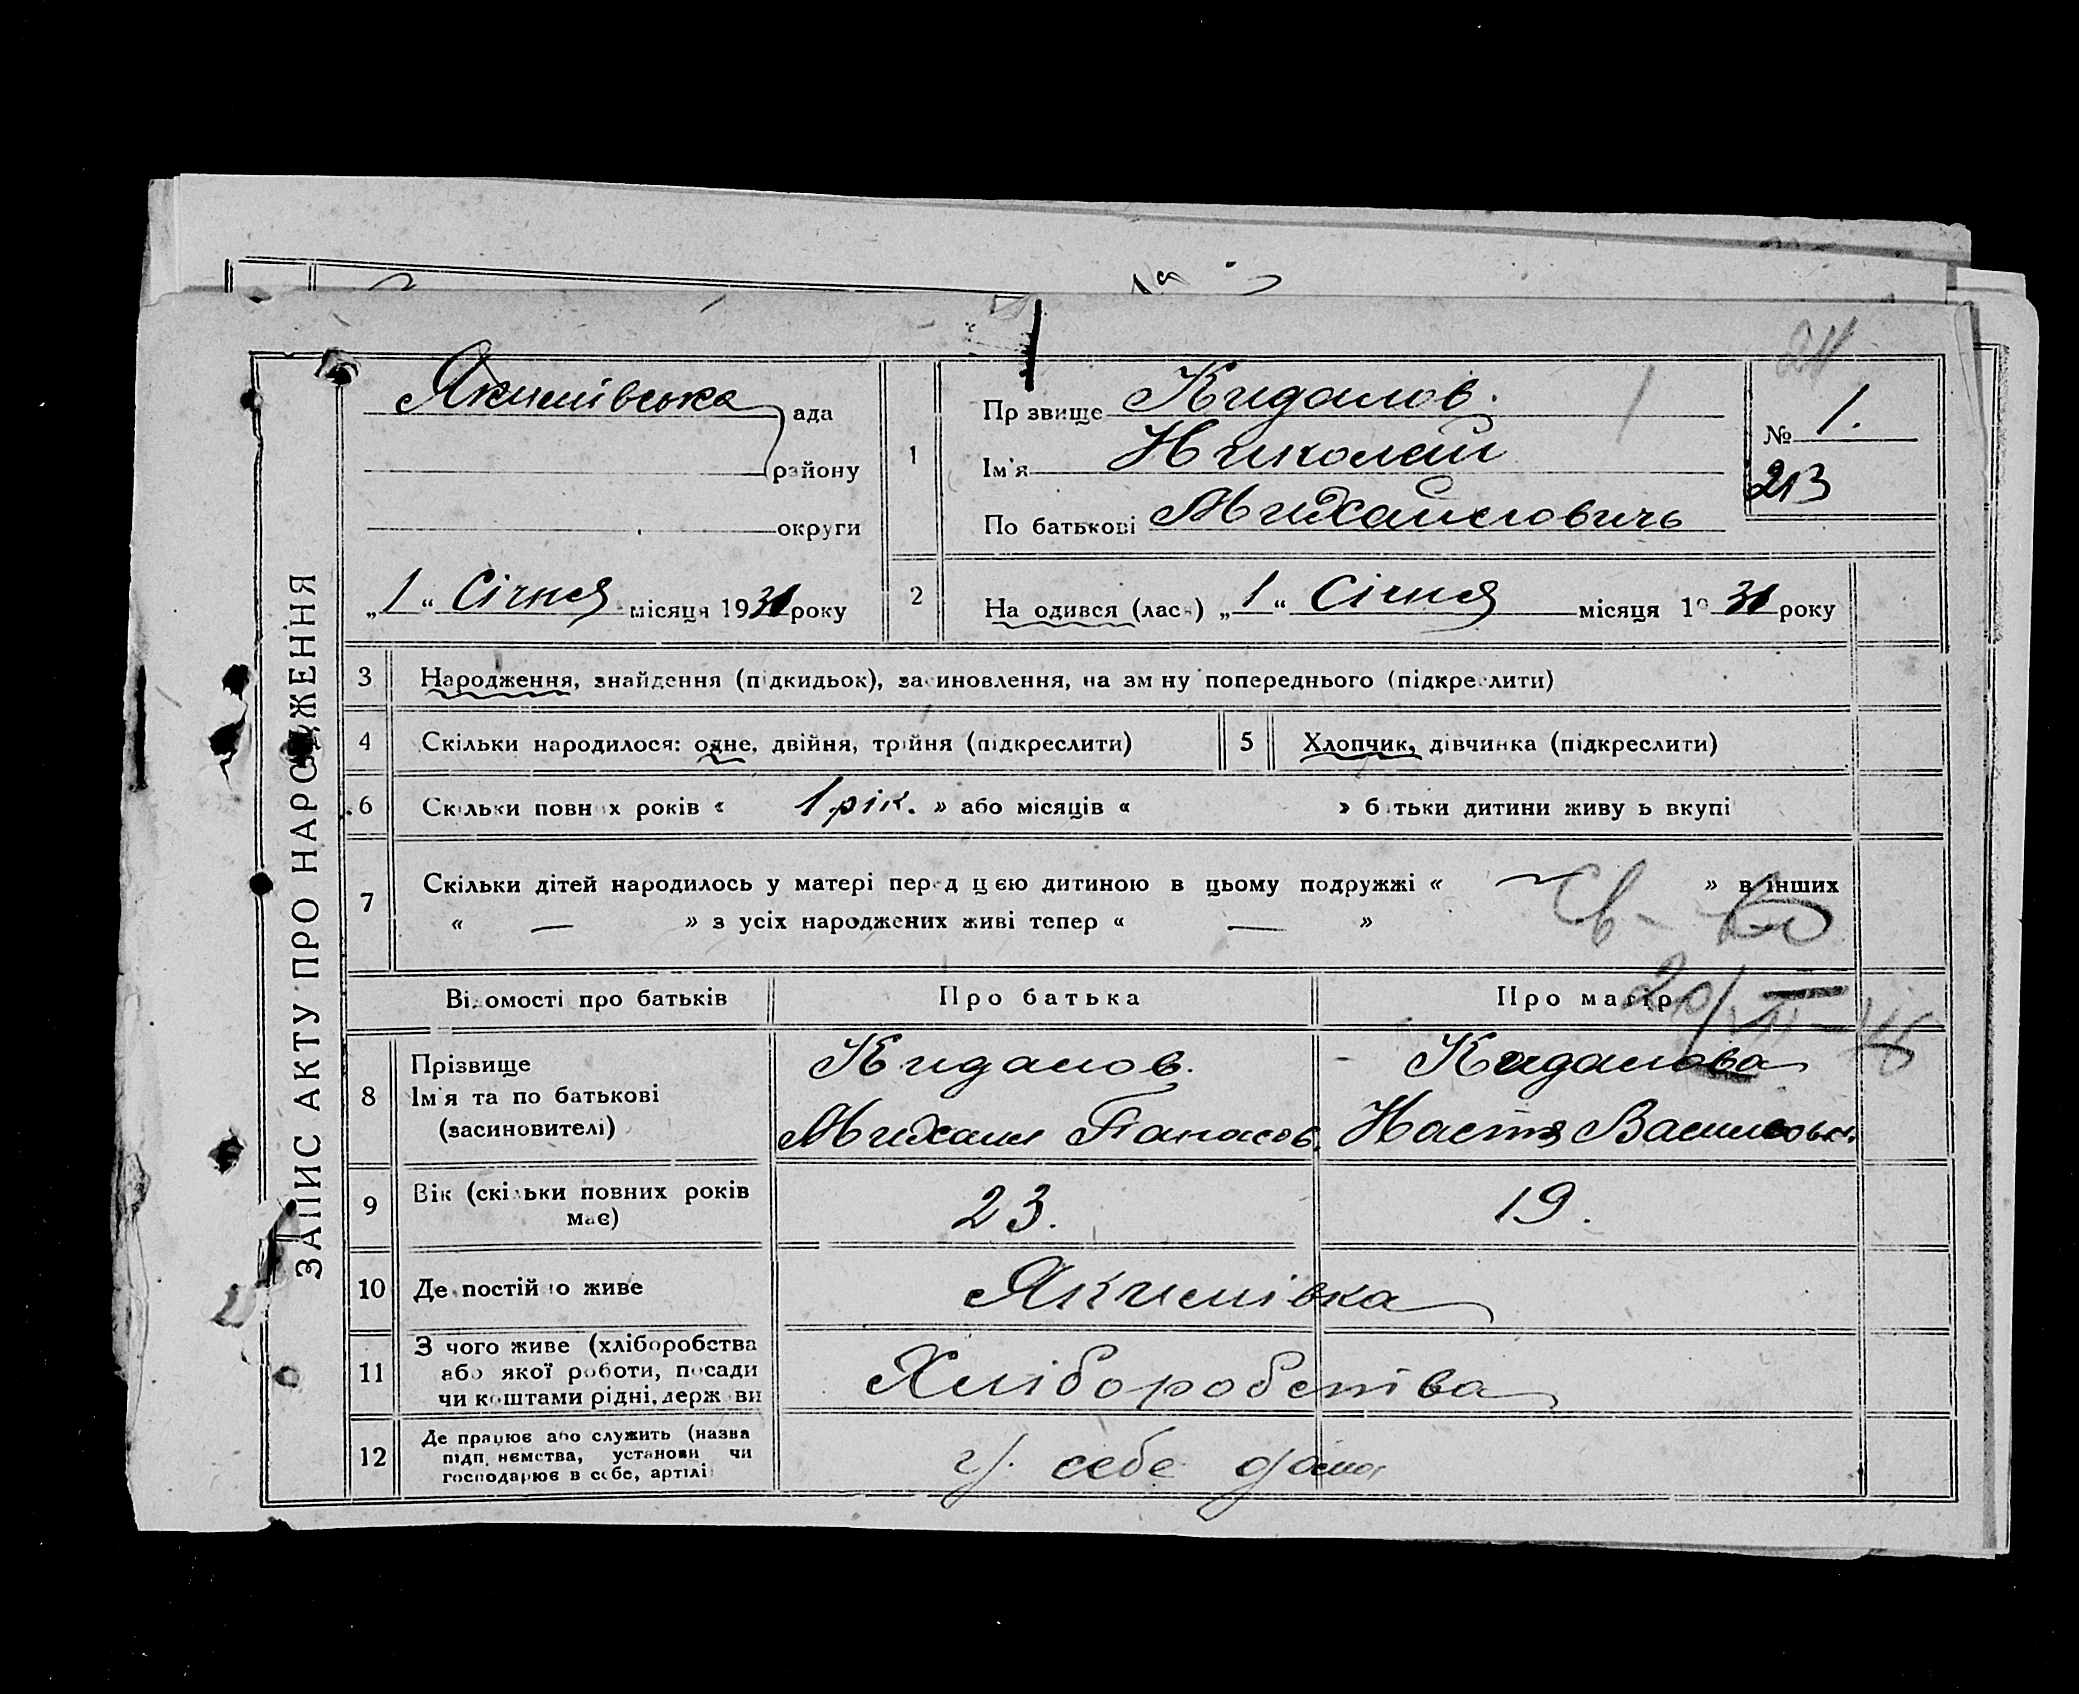 ЗАПИС АКТУ ПРО НАРОДЖЕННЯ
Якимівська ада
району
округи
„ 1 “ Січня місяця 1931 року
1
Пр звище Кидалов.
Ім'я Николай
По батькові Михайловичь
№ 1.
213
2
На одився (лась) „ 1 “ Січня місяця 19 31 року
3 Народження, знайдення (підкидьок), засиновлення, на зм ну попереднього (підкреслити)
4 Скільки народилося: одне, двійня, трійня (підкреслити)
5 Хлопчик, дівчинка (підкреслити)
6 Скільки повних років « 1 рік. » або місяців « » б тьки дитини живу ь вкупі
7 Скільки дітей народилось у матері перед цією дитиною в цьому подружжі « » в інших
« — » з усіх народжених живі тепер « — »
Відомості про батьків
Про батька
Про матір
8 Прізвище
Ім'я та по батькові
(засиновителі)
Кидалов.
Михаил Панасов.
Кидалова
Настя Васильовн.
9 Вік (скільки повних років
має)
23.
19.
10 Де постійно живе
Якимівка
11 З чого живе (хліборобства
або якої роботи, посади
чи коштами рідні, держ ви
Хліборобства
12 Де працює або служить (назва
підп ємства, установи чи
господарює в себе, артілі
себе дома